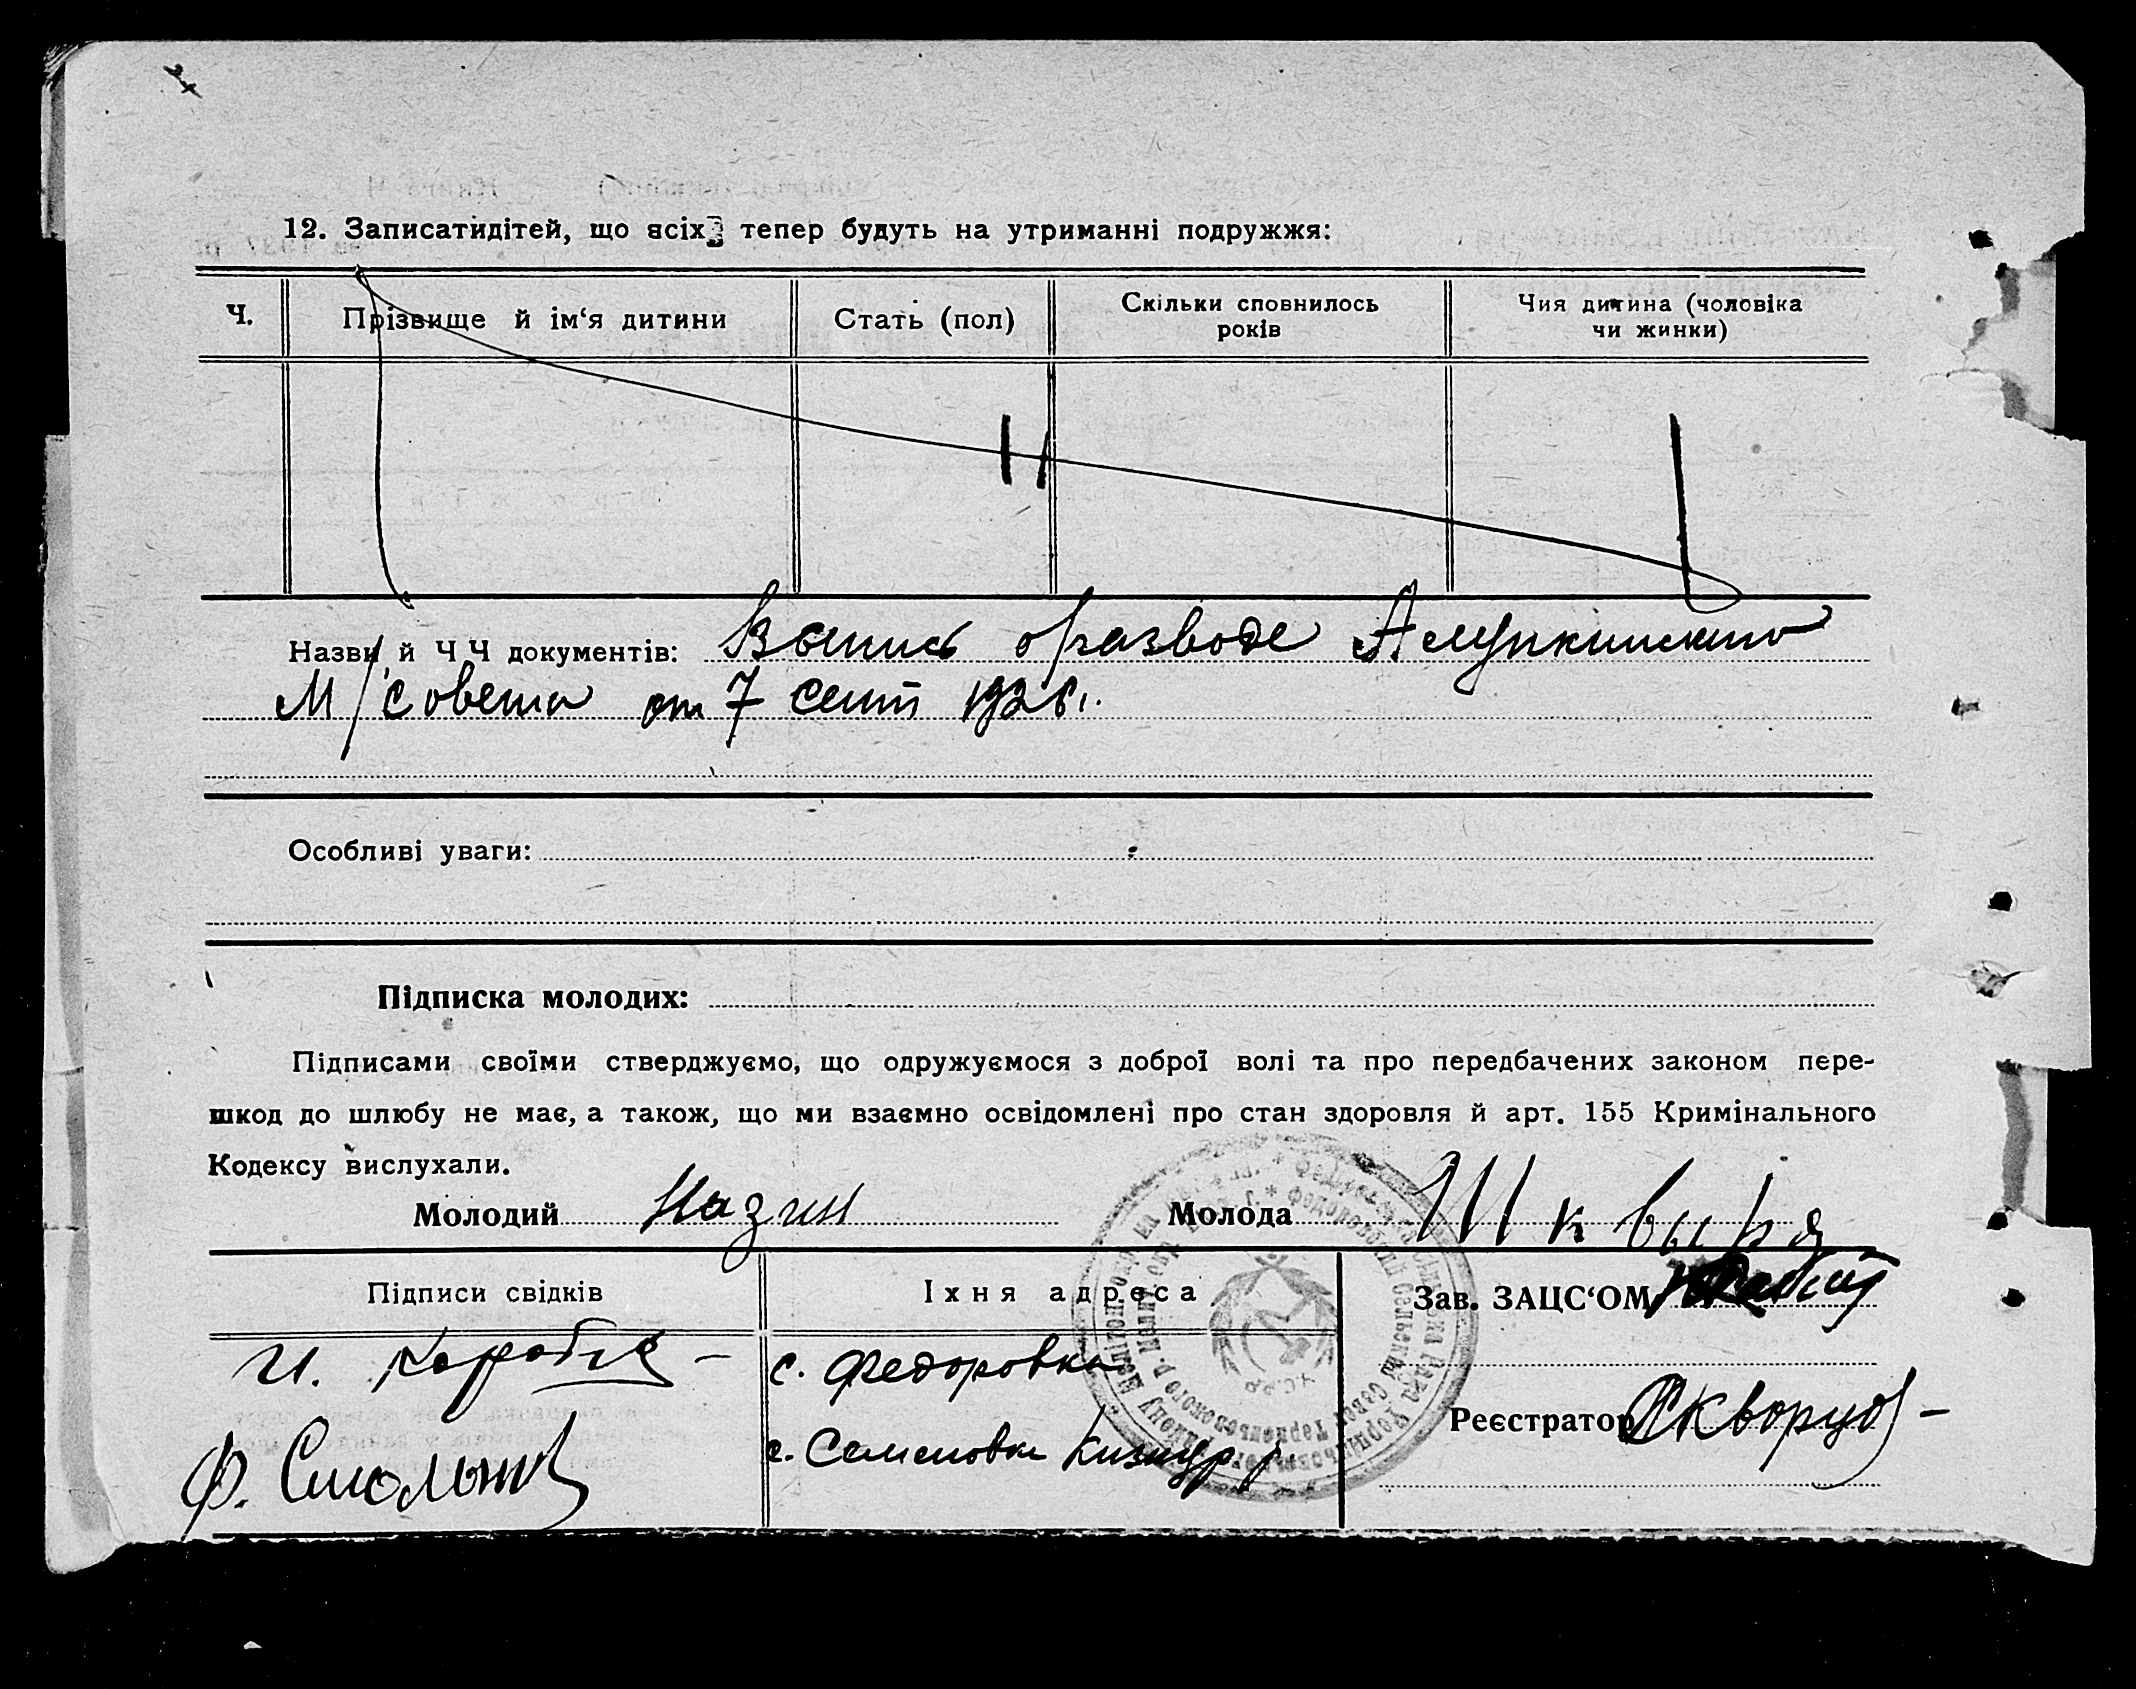 12. Записатидітей, що всіх тепер будуть на утриманні подружжя:
Ч.
Прізвище й ім‘я дитини
Стать (пол)
Скільки сповнилось
років
Чия дитина (чоловіка
чи жинки)
Назви й ЧЧ документів: Выпись о разводе Алупкинского
М/Совета от 7 сент 1926 г.
Особливі уваги:
Підписка молодих:
Підписами своїми стверджуємо, що одружуємося з доброї волі та про передбачених законом пере-
шкод до шлюбу не має, а також, що ми взаємно освідомлені про стан здоровля й арт. 155 Кримінального
Кодексу вислухали.
Молодий Назин Молода Шквыря
Підписи свідків
Їхня адреса
Зав. ЗАЦС‘ОМ
И.
с. Федоровка
Реєстратор Скворцов
Ф.
с. Семеновка